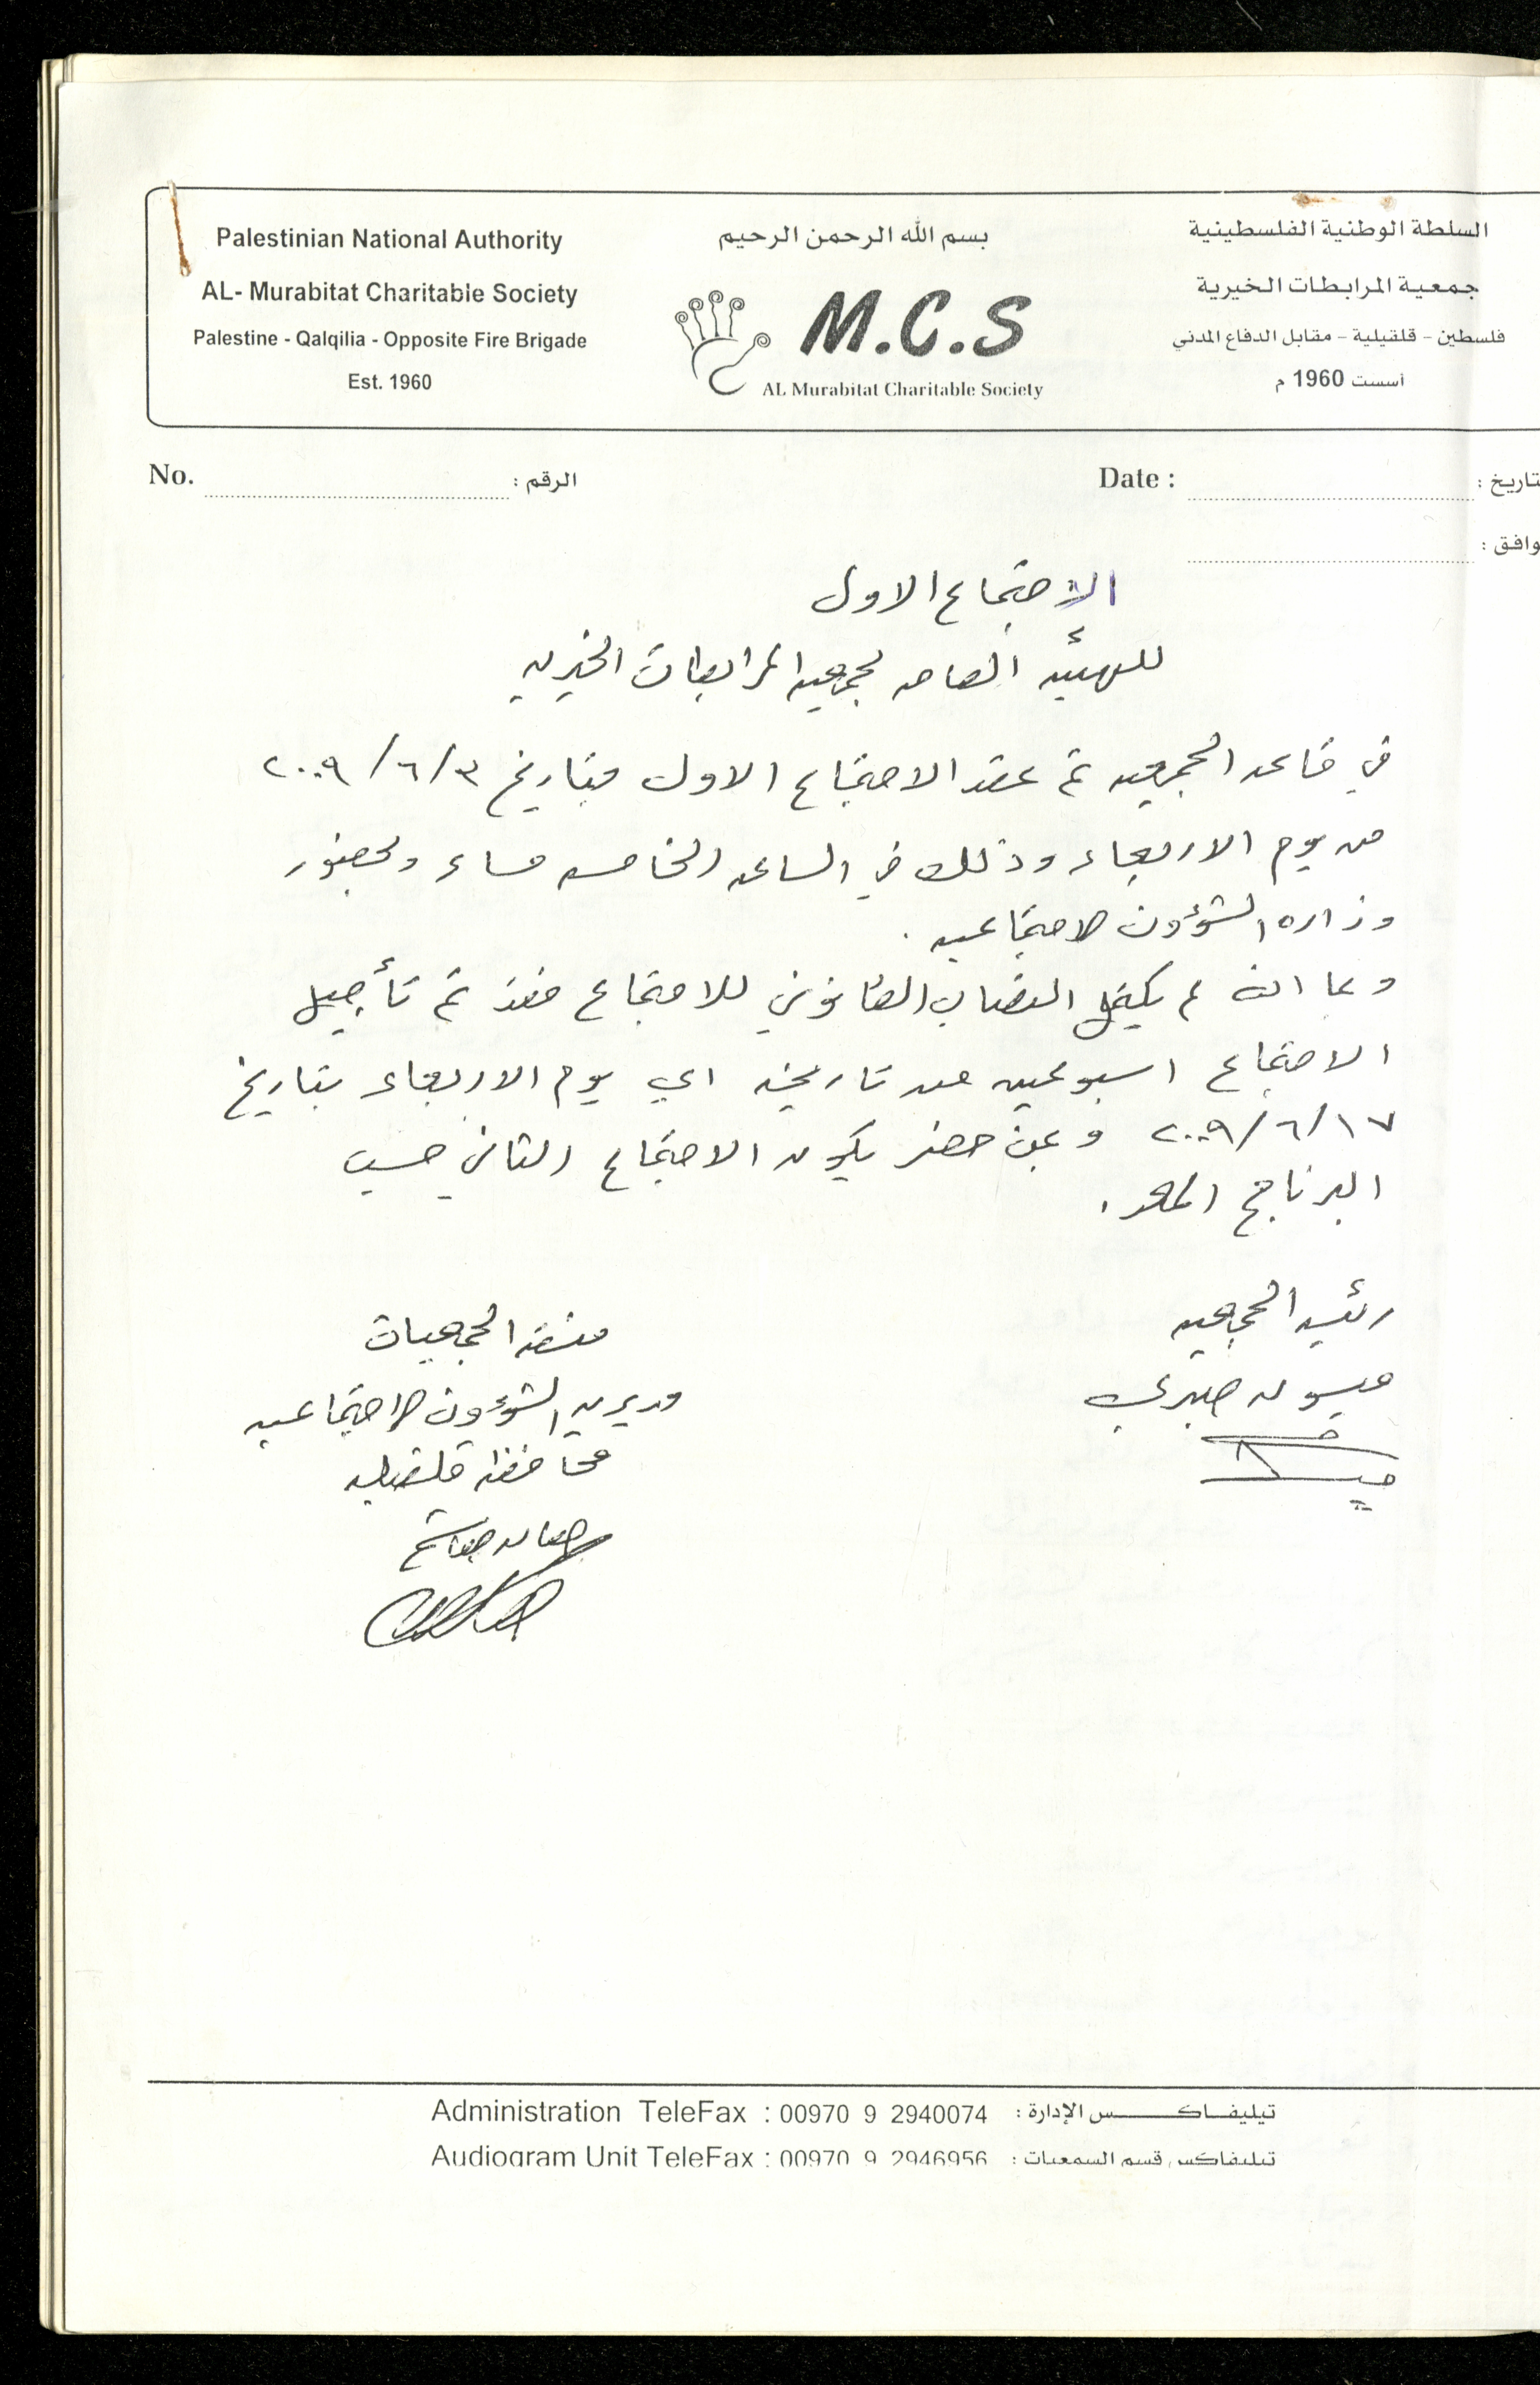 السلطة الوطنية الفلسطينية
جمعية المرابطات الخيرية
فلسطين - قلقيلية - مقابل الدفاع المدني
أسست 1960 م
بسم الله الرحمن الرحيم
M.C.S
AL Murabitat Charitable Society
Palestinian National Authority
AL- Murabitat Charitable Society
Palestine - Qalqilia - Opposite Fire Brigade
Est. 1960
No. الرقم :
Date : تاريخ :
وافق :
الاجتماع الاول
للهيئه العامه لجمعيه المرابطات الخيريه
في قاعه الجمعيه تم عقد الاجتماع الاول بتاريخ ٣/٦/٢٠٠٩
من يوم الاربعاء وذلك في الساعه الخامسه مساء وبحضور
وزاره الشؤون الاجتماعيه .
وبما انه لم يكتمل النصاب القانوني للاجتماع فقد تم تأجيل
الاجتماع اسبوعين من تاريخه اي يوم الاربعاء بتاريخ
١٧/٦/٢٠٠٩ وبمن حضر يكون الاجتماع الثاني حسب
البرنامج المعد .
رئيسه الجمعيه
ميسون صبري
منسقه الجمعيات
مديريه الشؤون الاجتماعيه
محافظه قلقيليه
Administration TeleFax : 00970 9 2940074 تيليفاكس الإدارة :
Audiogram Unit TeleFax : 00970 9 2946956 تيليفاكس قسم السمعيات :